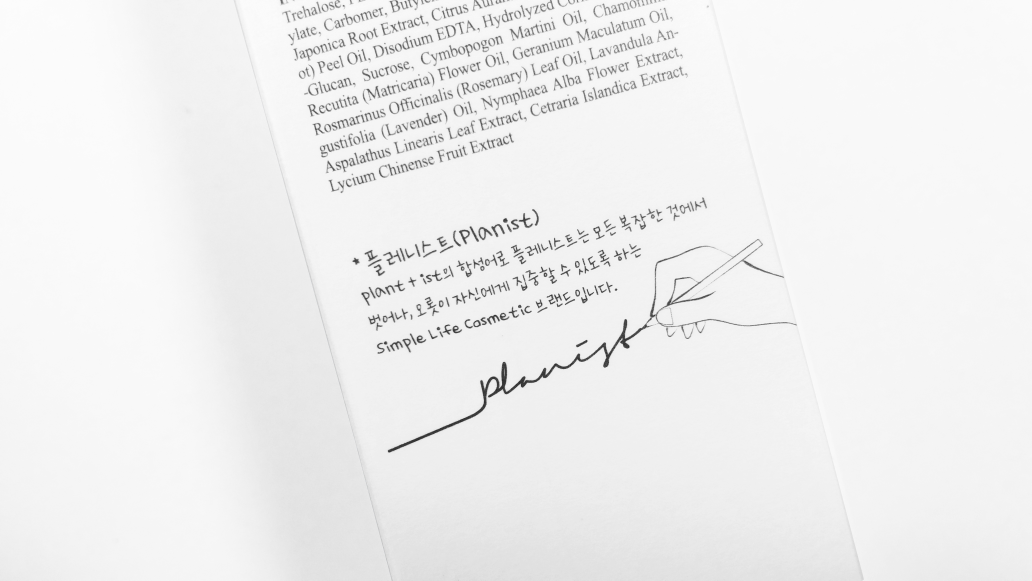 Trehalose,
ylate, Carbomer,
Japonica Root Extract, Citrus
ot) Peel Oil, Disodium EDTA, Hydrolyzed
-Glucan, Sucrose, Cymbopogon Martini Oil,
Recutita (Matricaria) Flower Oil, Geranium Maculatum Oil,
Rosmarinus Officinalis (Rosemary) Leaf Oil, Lavandula An-
gustifolia (Lavender) Oil, Nymphaea Alba Flower Extract,
Aspalathus Linearis Leaf Extract, Cetraria Islandica Extract,
Lycium Chinense Fruit Extract
* 플레니스트(Planist)
plant + ist의 합성어로 플레니스트는 모든 복잡한 것에서
벗어나, 오롯이 자신에게 집중할 수 있도록 하는
Simple Life Cosmetic 브랜드입니다.
planist